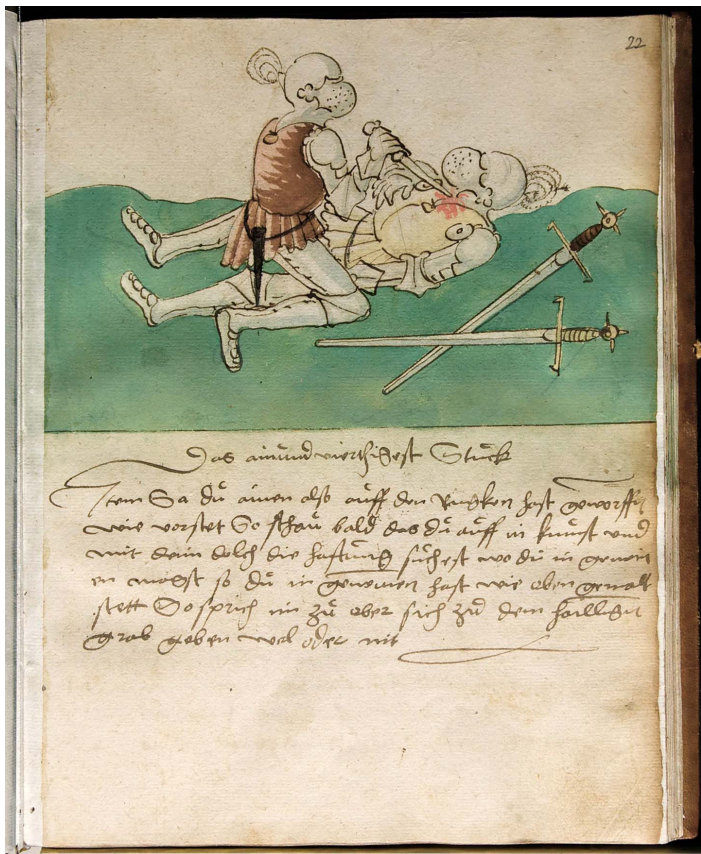 22
Das ainundvierthigest Stuck
Item Sa du ainen also auff den Rugken hast geworffen
wie vorstet So schau bald das du auff in kumst und
mit dein dolch die hafftung suchest wo du in gewin
en magst so du in gewunen hast wie oben gemalt
stett So sprich im zu ober sich zu dem haillgen
grab geben wel oder nit